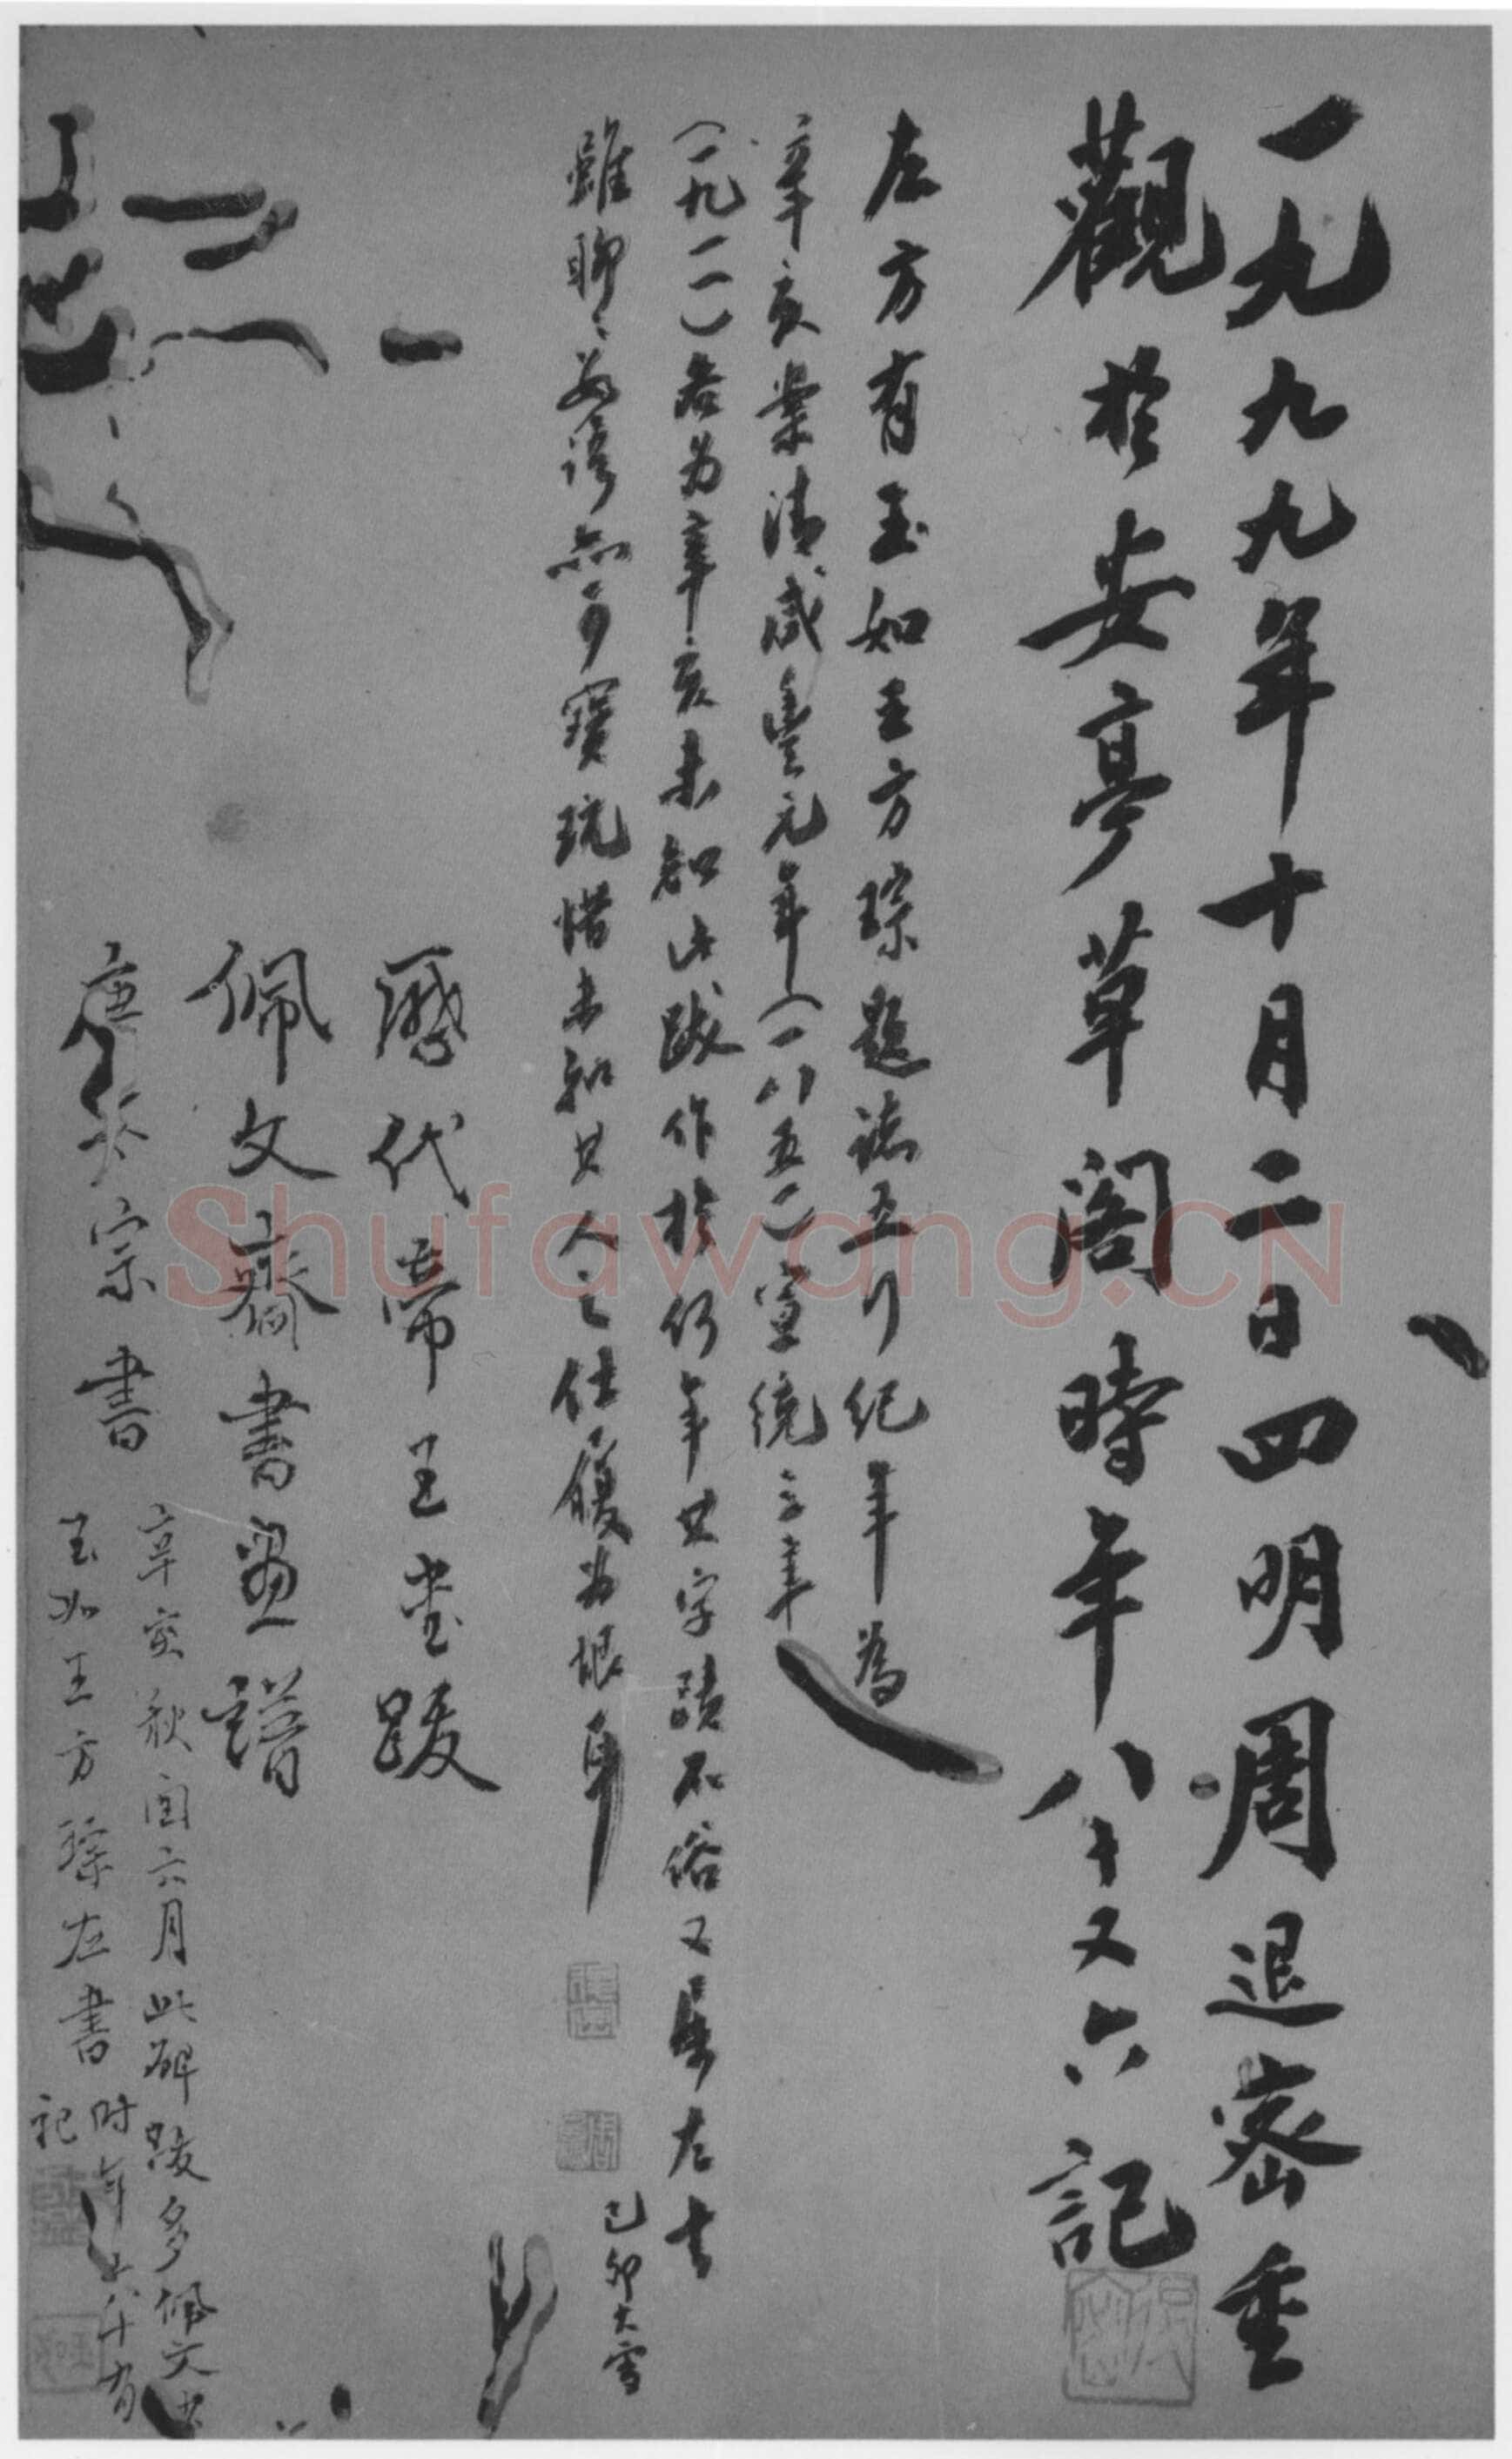 一九九九年十月二日四明周退密重
觀於安亭草閣時年八十又六記
左方有玉如王方琮題誌五行紀年為
辛亥案清咸豐元年（一八五一）宣統三年
（一九一一）皆為辛亥未知此跋作於何年其字蹟不俗又屬左書
雖聊聊數語亦可寶玩惜未知其人之仕履為恨耳
己卯大雪
歷代帝王書跋
佩文齋書畫譜
唐太宗書
辛亥秋閏六月此碑跋多佩文
玉如王方琮左書時年六十有
記
Shufawang.CN